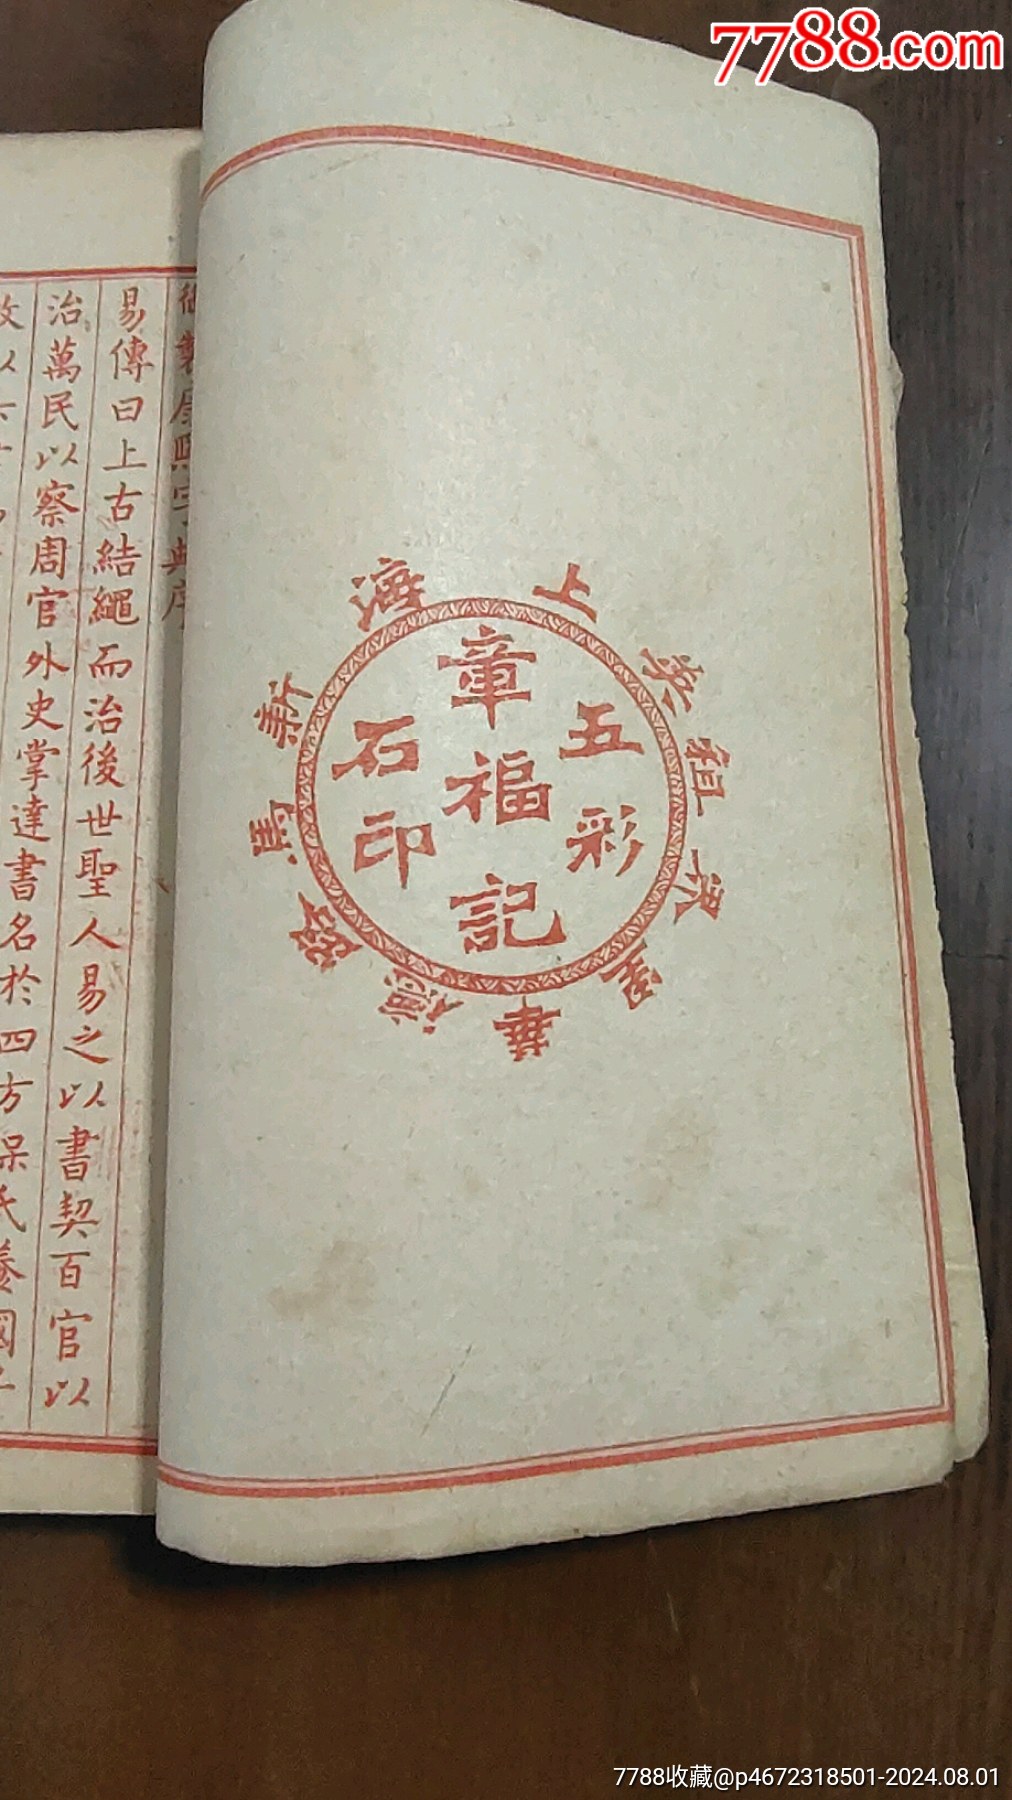 7788.com
上海
英租界
新馬路
華里
五彩
章福記
石印
御製康熙字典序
易傳曰上古結繩而治後世聖人易之以書契百官以
治萬民以察周官外史掌達書名於四方保氏養國子
7788收藏@p4672318501-2024.08.01